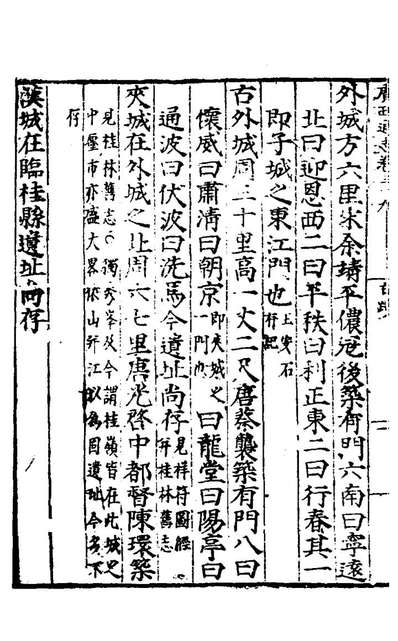 外城方六里宋余靖平儂寇後築有門六南曰寧遠
北曰迎恩西二曰平秩曰利正東二曰行春其一
即子城之東江門也王安石
有記
古外城周三十里高一丈二尺唐蔡襲築有門八曰
懷威曰肅清曰朝京即夾城之
一門也曰龍堂曰陽亭曰
通波曰伏波曰洗馬今遺址尚存見祥符圖經
并桂林舊志
夾城在外城之北周六七里唐光啓中都督陳環築
見桂林舊志○獨秀峯及今謂桂嶺皆在此城
中壓市亦盛大畧依山并江以為固遺址今多不
存
漢城在臨桂縣遺址尚存